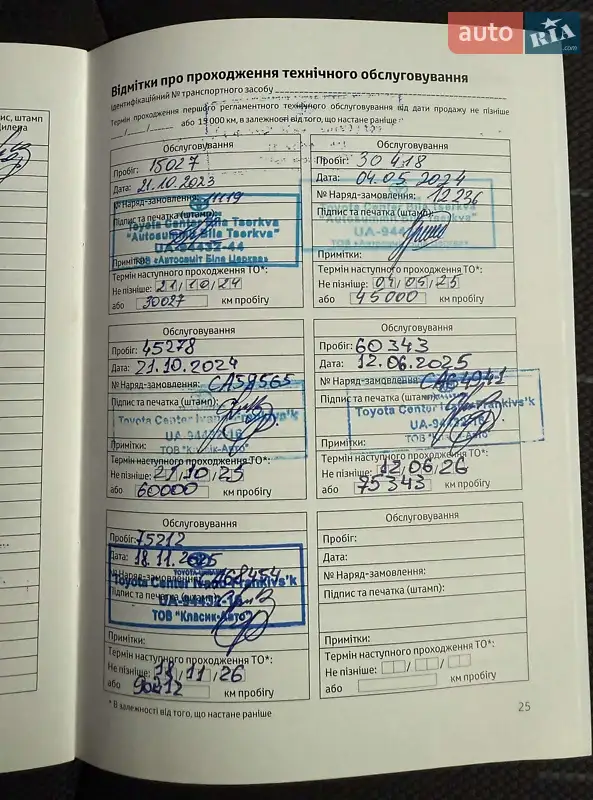 auto RIA.com
ис, штамп
илера
Відмітки про проходження технічного обслуговування
Ідентифікаційний № транспортного засобу
Термін проходження першого регламентного технічного обслуговування від дати продажу не пізніше
__/__/__ або 15 000 км, в залежності від того, що настане раніше
Обслуговування
Пробіг: 15027
Дата: 21.10.2023
№ Наряд-замовлення: 11119
Підпис та печатка (штамп):
Toyota Center Bila Tserkva
"Autosummit Bila Tserkva"
UA-94432-44
ТОВ «Автосаміт Біла Церква»
Примітки:
Термін наступного проходження ТО*:
Не пізніше: 21/10/24
або 30027 км пробігу
Обслуговування
Пробіг: 30418
Дата: 04.05.2024
№ Наряд-замовлення: 12236
Підпис та печатка (штамп):
Toyota Center Bila Tserkva
"Autosummit Bila Tserkva"
ТОВ «Автосаміт Біла Церква»
Примітки:
Термін наступного проходження ТО*:
Не пізніше: 04/05/25
або 45000 км пробігу
Обслуговування
Пробіг: 45278
Дата: 21.10.2024
№ Наряд-замовлення: CA59565
Підпис та печатка (штамп):
Toyota Center Ivano-Frankivs'k
UA-94432-16
ТОВ "Класик-Авто"
Примітки:
Термін наступного проходження ТО*:
Не пізніше: 21/10/25
або 60000 км пробігу
Обслуговування
Пробіг: 60343
Дата: 12.06.2025
№ Наряд-замовлення: CA64941
Підпис та печатка (штамп):
Toyota Center Ivano-Frankivs'k
UA-94432-16
ТОВ "Класик-Авто"
Примітки:
Термін наступного проходження ТО*:
Не пізніше: 12/06/26
або 75343 км пробігу
Обслуговування
Пробіг: 75212
Дата: 18.11.2025
№ Наряд-замовлення: CA68454
Підпис та печатка (штамп):
Toyota Center Ivano-Frankivs'k
UA-94432-16
ТОВ "Класик-Авто"
Примітки:
Термін наступного проходження ТО*:
Не пізніше: 18/11/26
або 90212 км пробігу
Обслуговування
Пробіг:
Дата:
№ Наряд-замовлення:
Підпис та печатка (штамп):
Примітки:
Термін наступного проходження ТО*:
Не пізніше: / /
або км пробігу
* В залежності від того, що настане раніше
25